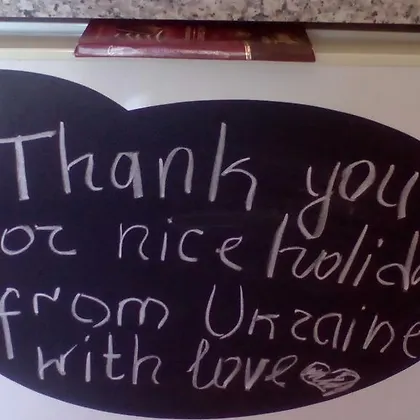 Thank you
or nice holida
from Ukraine
with love